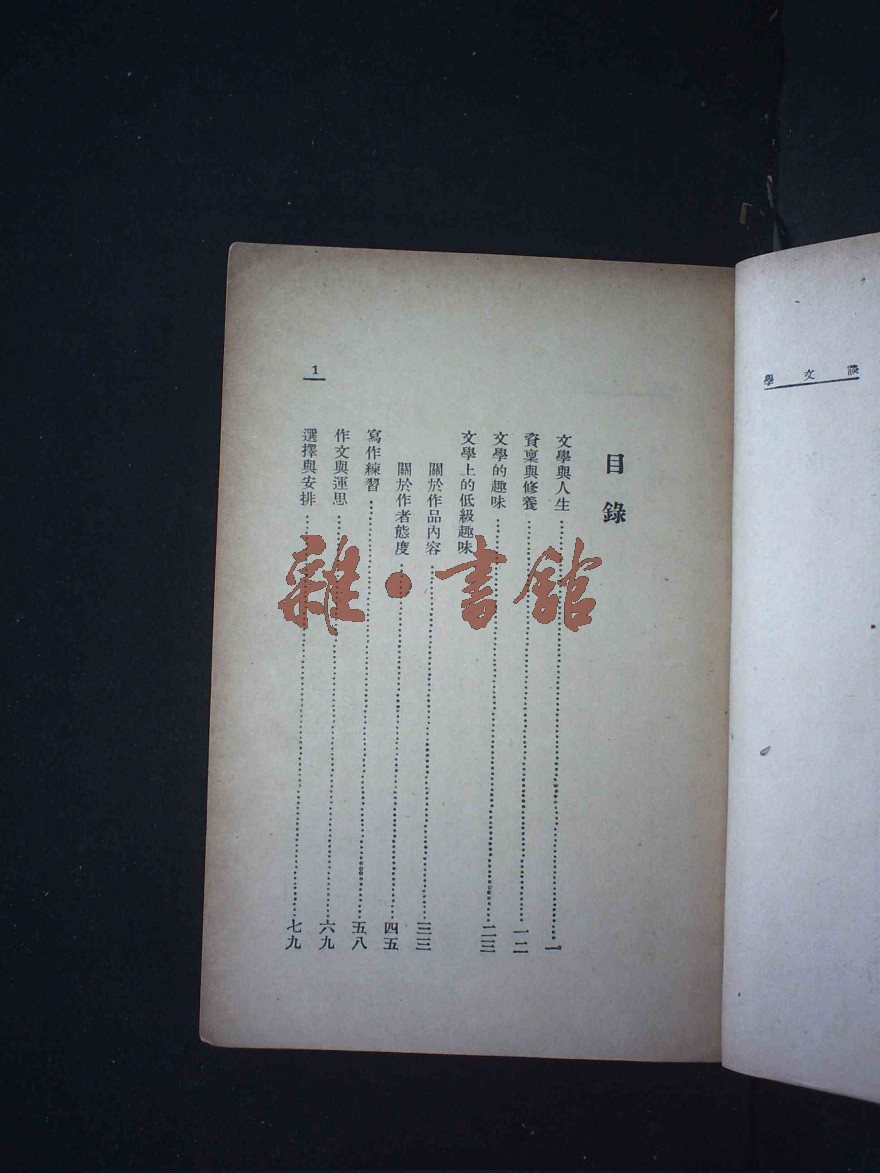 談文學
1
目錄
文學與人生 一
資稟與修養 一二
文學的趣味 二三
文學上的低級趣味
關於作品內容 三三
關於作者態度 四五
寫作練習 五八
作文與運思 六九
選擇與安排 七九
雜·書館